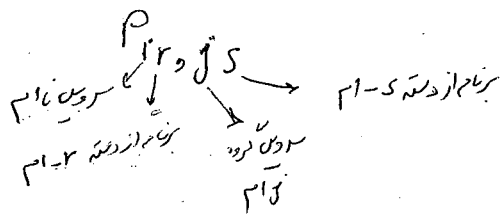 P ir, js
سرویس i ام
برنامه از دسته r-ام
سرویس گروه
j ام
برنامه از دسته s-ام